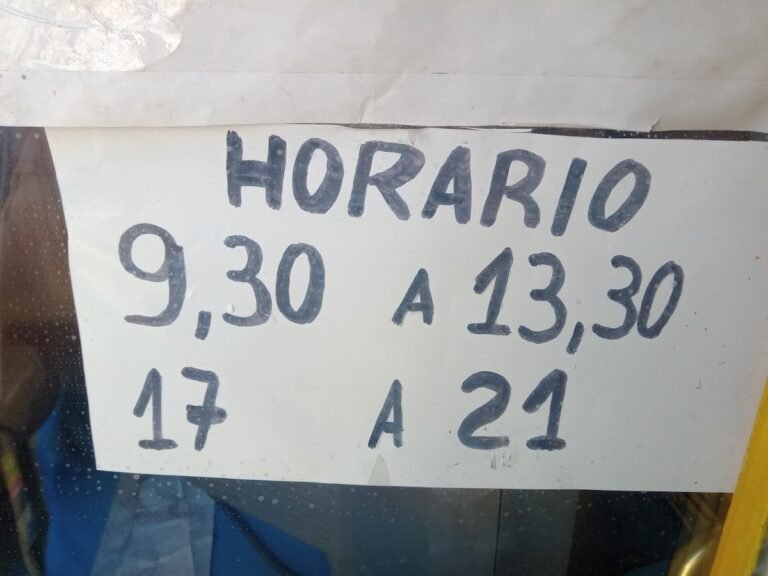 HORARIO
9,30 A 13,30
17 A 21